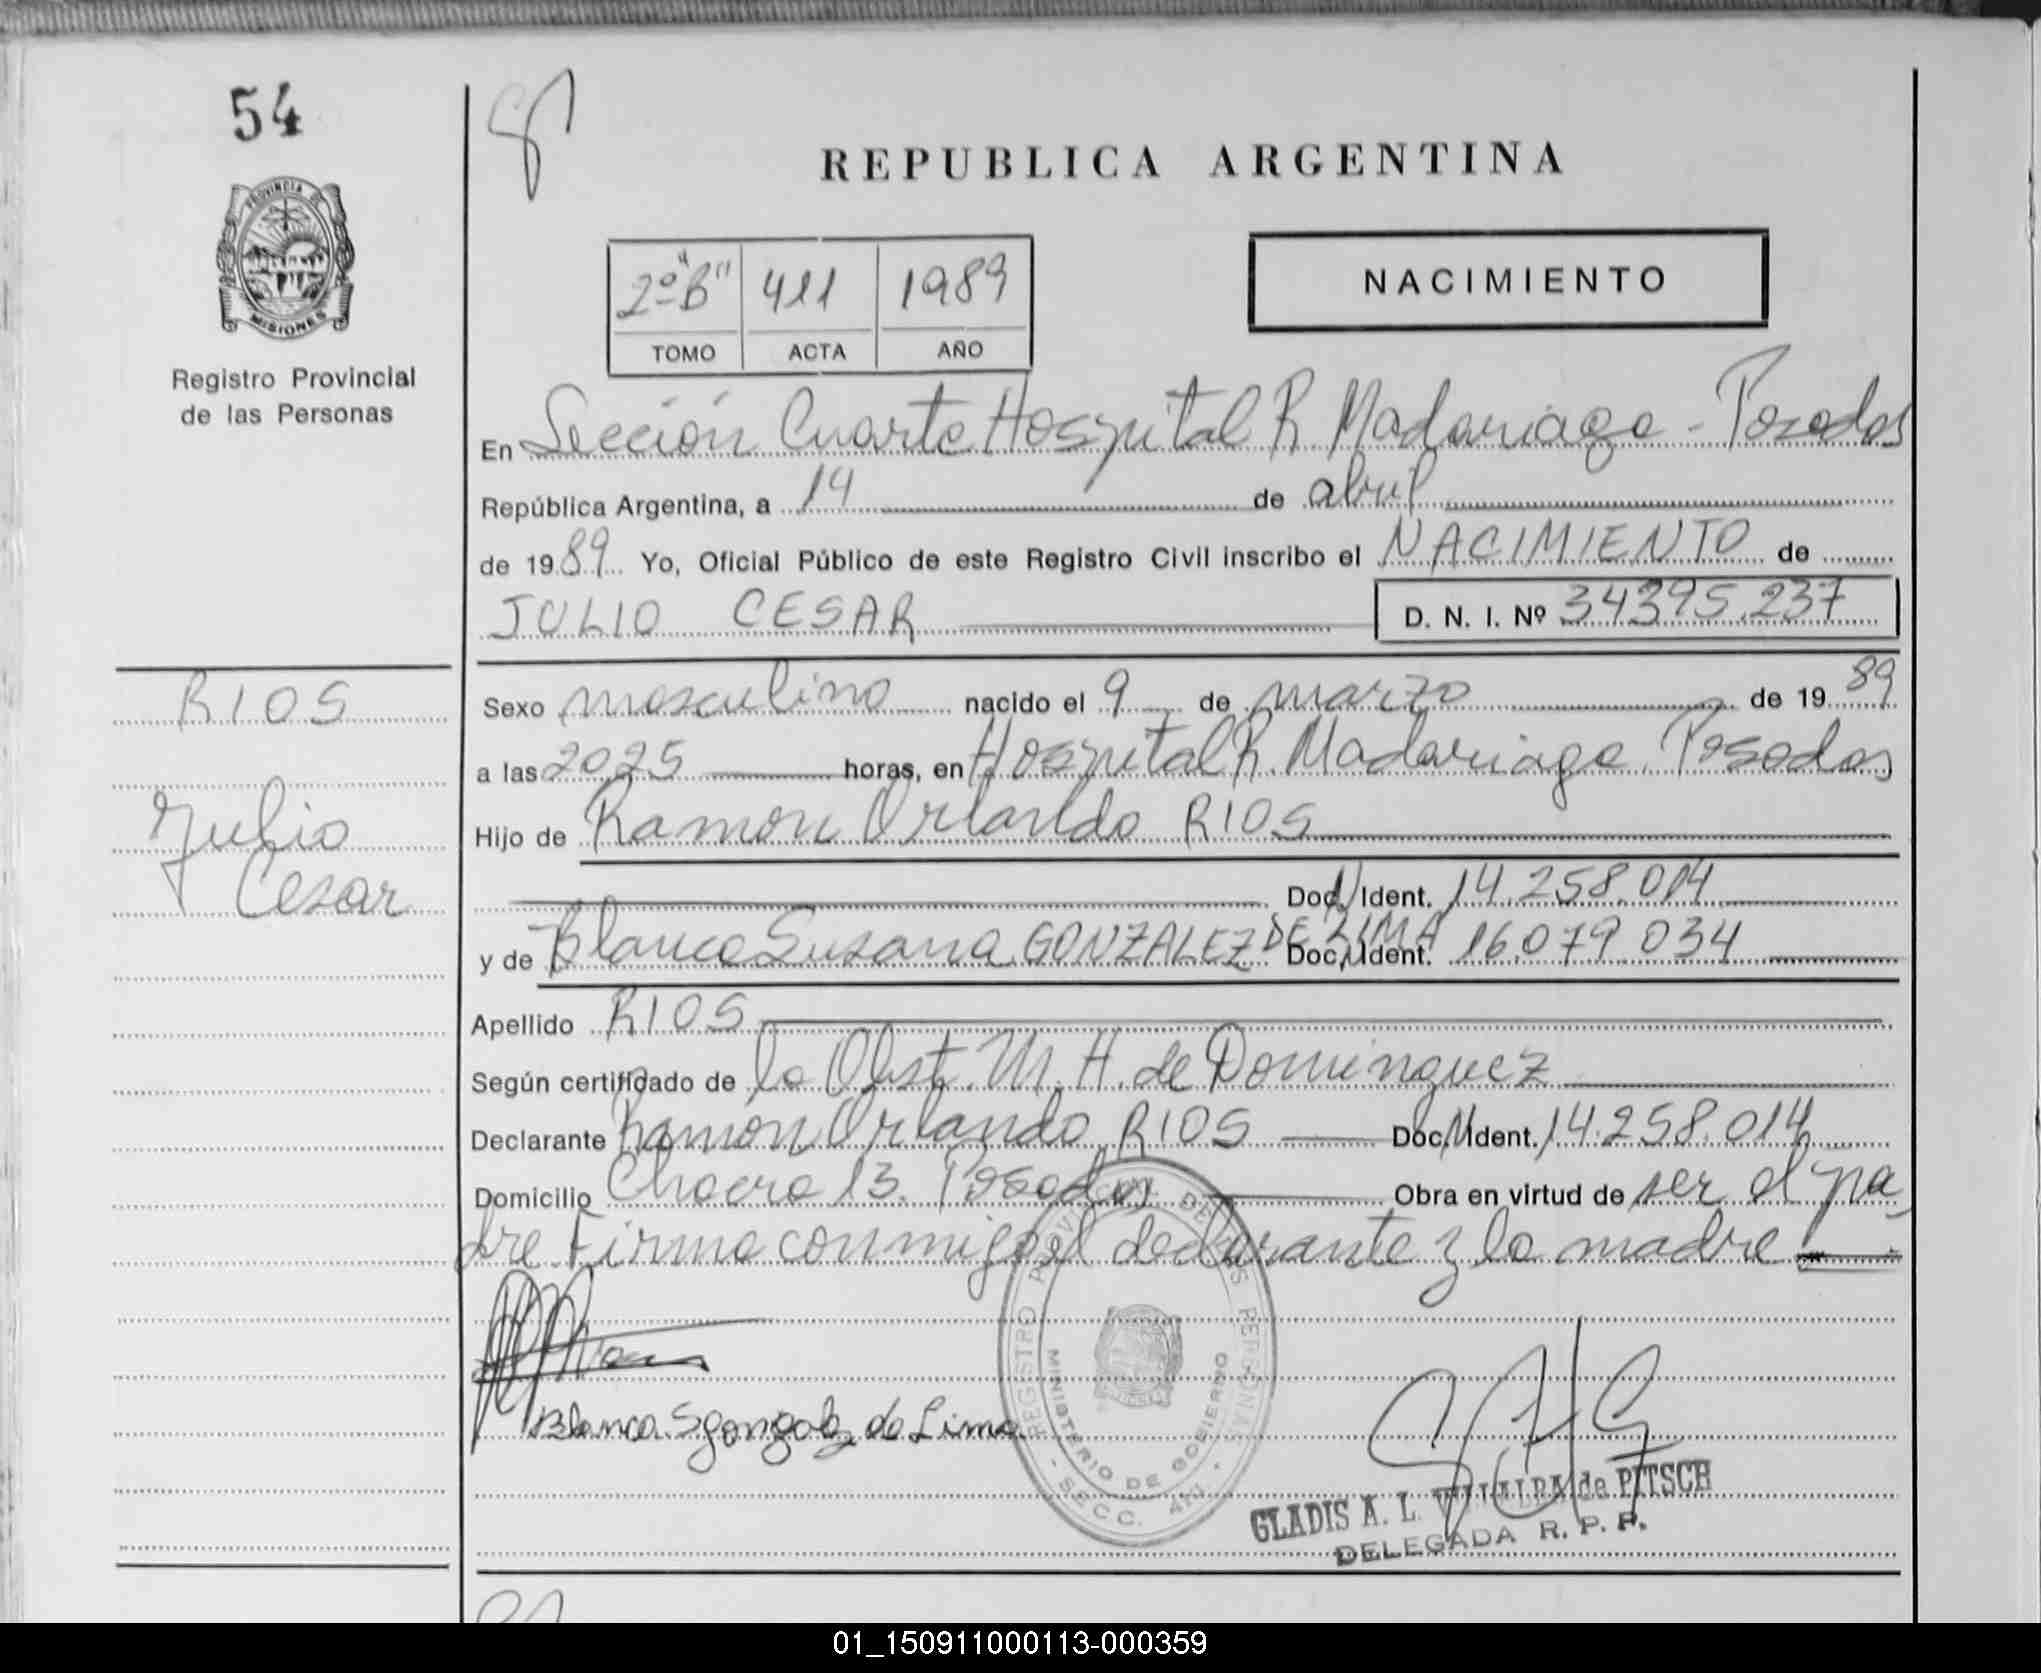 54
PROVINCIA DE
MISIONES
Registro Provincial
de las Personas
REPUBLICA ARGENTINA
2º "B" 411 1989
TOMO ACTA AÑO
NACIMIENTO
En Sección Cuarta Hospital R. Madariaga - Posadas
República Argentina, a 14 de abril
de 1989 Yo, Oficial Público de este Registro Civil inscribo el NACIMIENTO de
JULIO CESAR D. N. I. Nº 34395.237
RIOS
Julio
Cesar
Sexo masculino nacido el 9 de marzo de 1989
a las 2025 horas, en Hospital R. Madariaga. Posadas
Hijo de Ramon Orlando RIOS
Doc. N Ident. 14.258.014
y de Blanca Susana GONZALEZ DE LIMA Doc. N Ident. 16.079.034
Apellido RIOS
Según certificado de la Obst. M. H. de Dominguez
Declarante Ramon Orlando RIOS Doc. N Ident. 14.258.014
Domicilio Chacra 13. Posadas Obra en virtud de ser el pa
dre. Firma conmigo el declarante y la madre
Blanca S gonzalez de Lima
REGISTRO PROVINCIAL DE LAS PERSONAS
MINISTERIO DE GOBIERNO
SECC. 4ta
GLADIS A. L. VILLALBA de PITSCH
DELEGADA R. P. P.
01_150911000113-000359